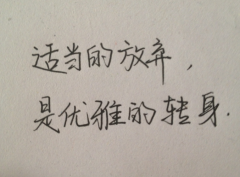 适当的放弃，
是优雅的转身.